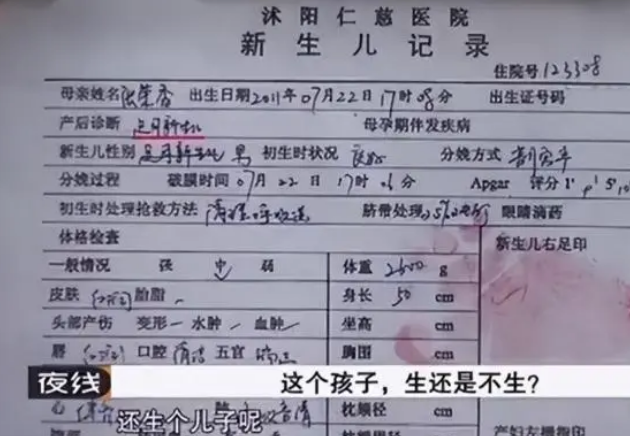 沭阳仁慈医院
新生儿记录
住院号 123308
母亲姓名 张荣香 出生日期 2011年07月22日17时08分 出生证号码
产后诊断 足月新生儿 母孕期伴发疾病
新生儿性别 男 初生时状况 良好 分娩方式 剖宫产
分娩过程 破膜时间 07月22日17时06分 Apgar 评分1' 5'
初生时处理抢救方法 清理呼吸道 脐带处理 眼睛滴药
体格检查 新生儿右足印
一般情况 强 中 弱 体重 2600 g
皮肤 红润 胎脂 身长 50 cm
头部产伤 变形 水肿 血肿 坐高 cm
唇 红润 口腔 清洁 五官 胸围 cm
夜线 这个孩子，生还是不生？
心 枕额径 cm
还生个儿子呢
产妇左拇指印